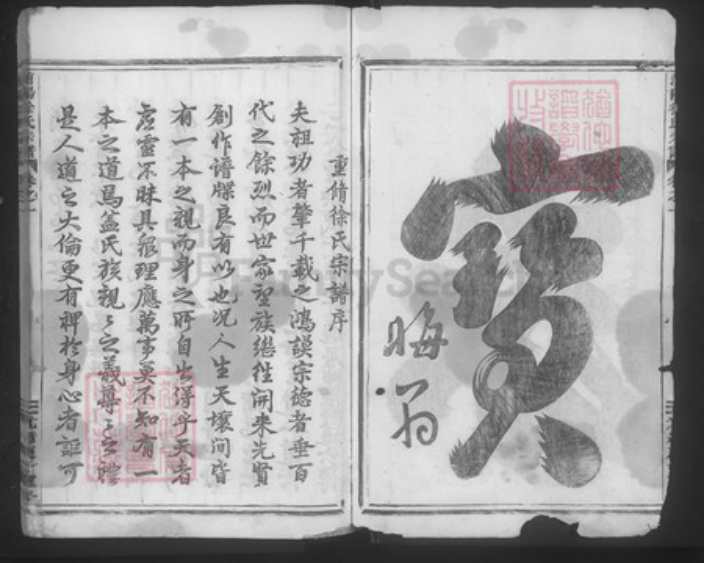 寶
晦翁
重脩徐氏宗譜序
夫祖功者肇千載之鴻謨宗德者垂百
代之餘烈而世家望族繼徃開来先賢
創作譜牒良有以也况人生天壤间皆
有一本之親而身之所自出得乎天者
虛靈不昧具衆理應萬事莫不知有一
本之道焉盖氏族親〻之義尊〻之禮
是人道之大倫更有裨於身心者詎可
FamilySearch